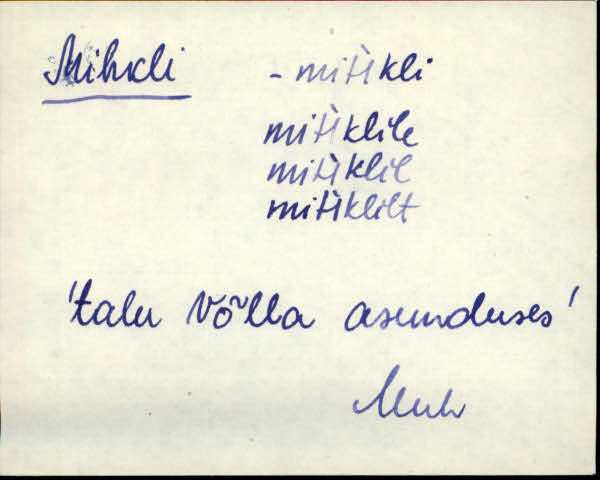 Mihkli - mih̀kli
mih̀klile
mih̀klil
mih̀klilt
'talu Võlla asunduses'
Muh